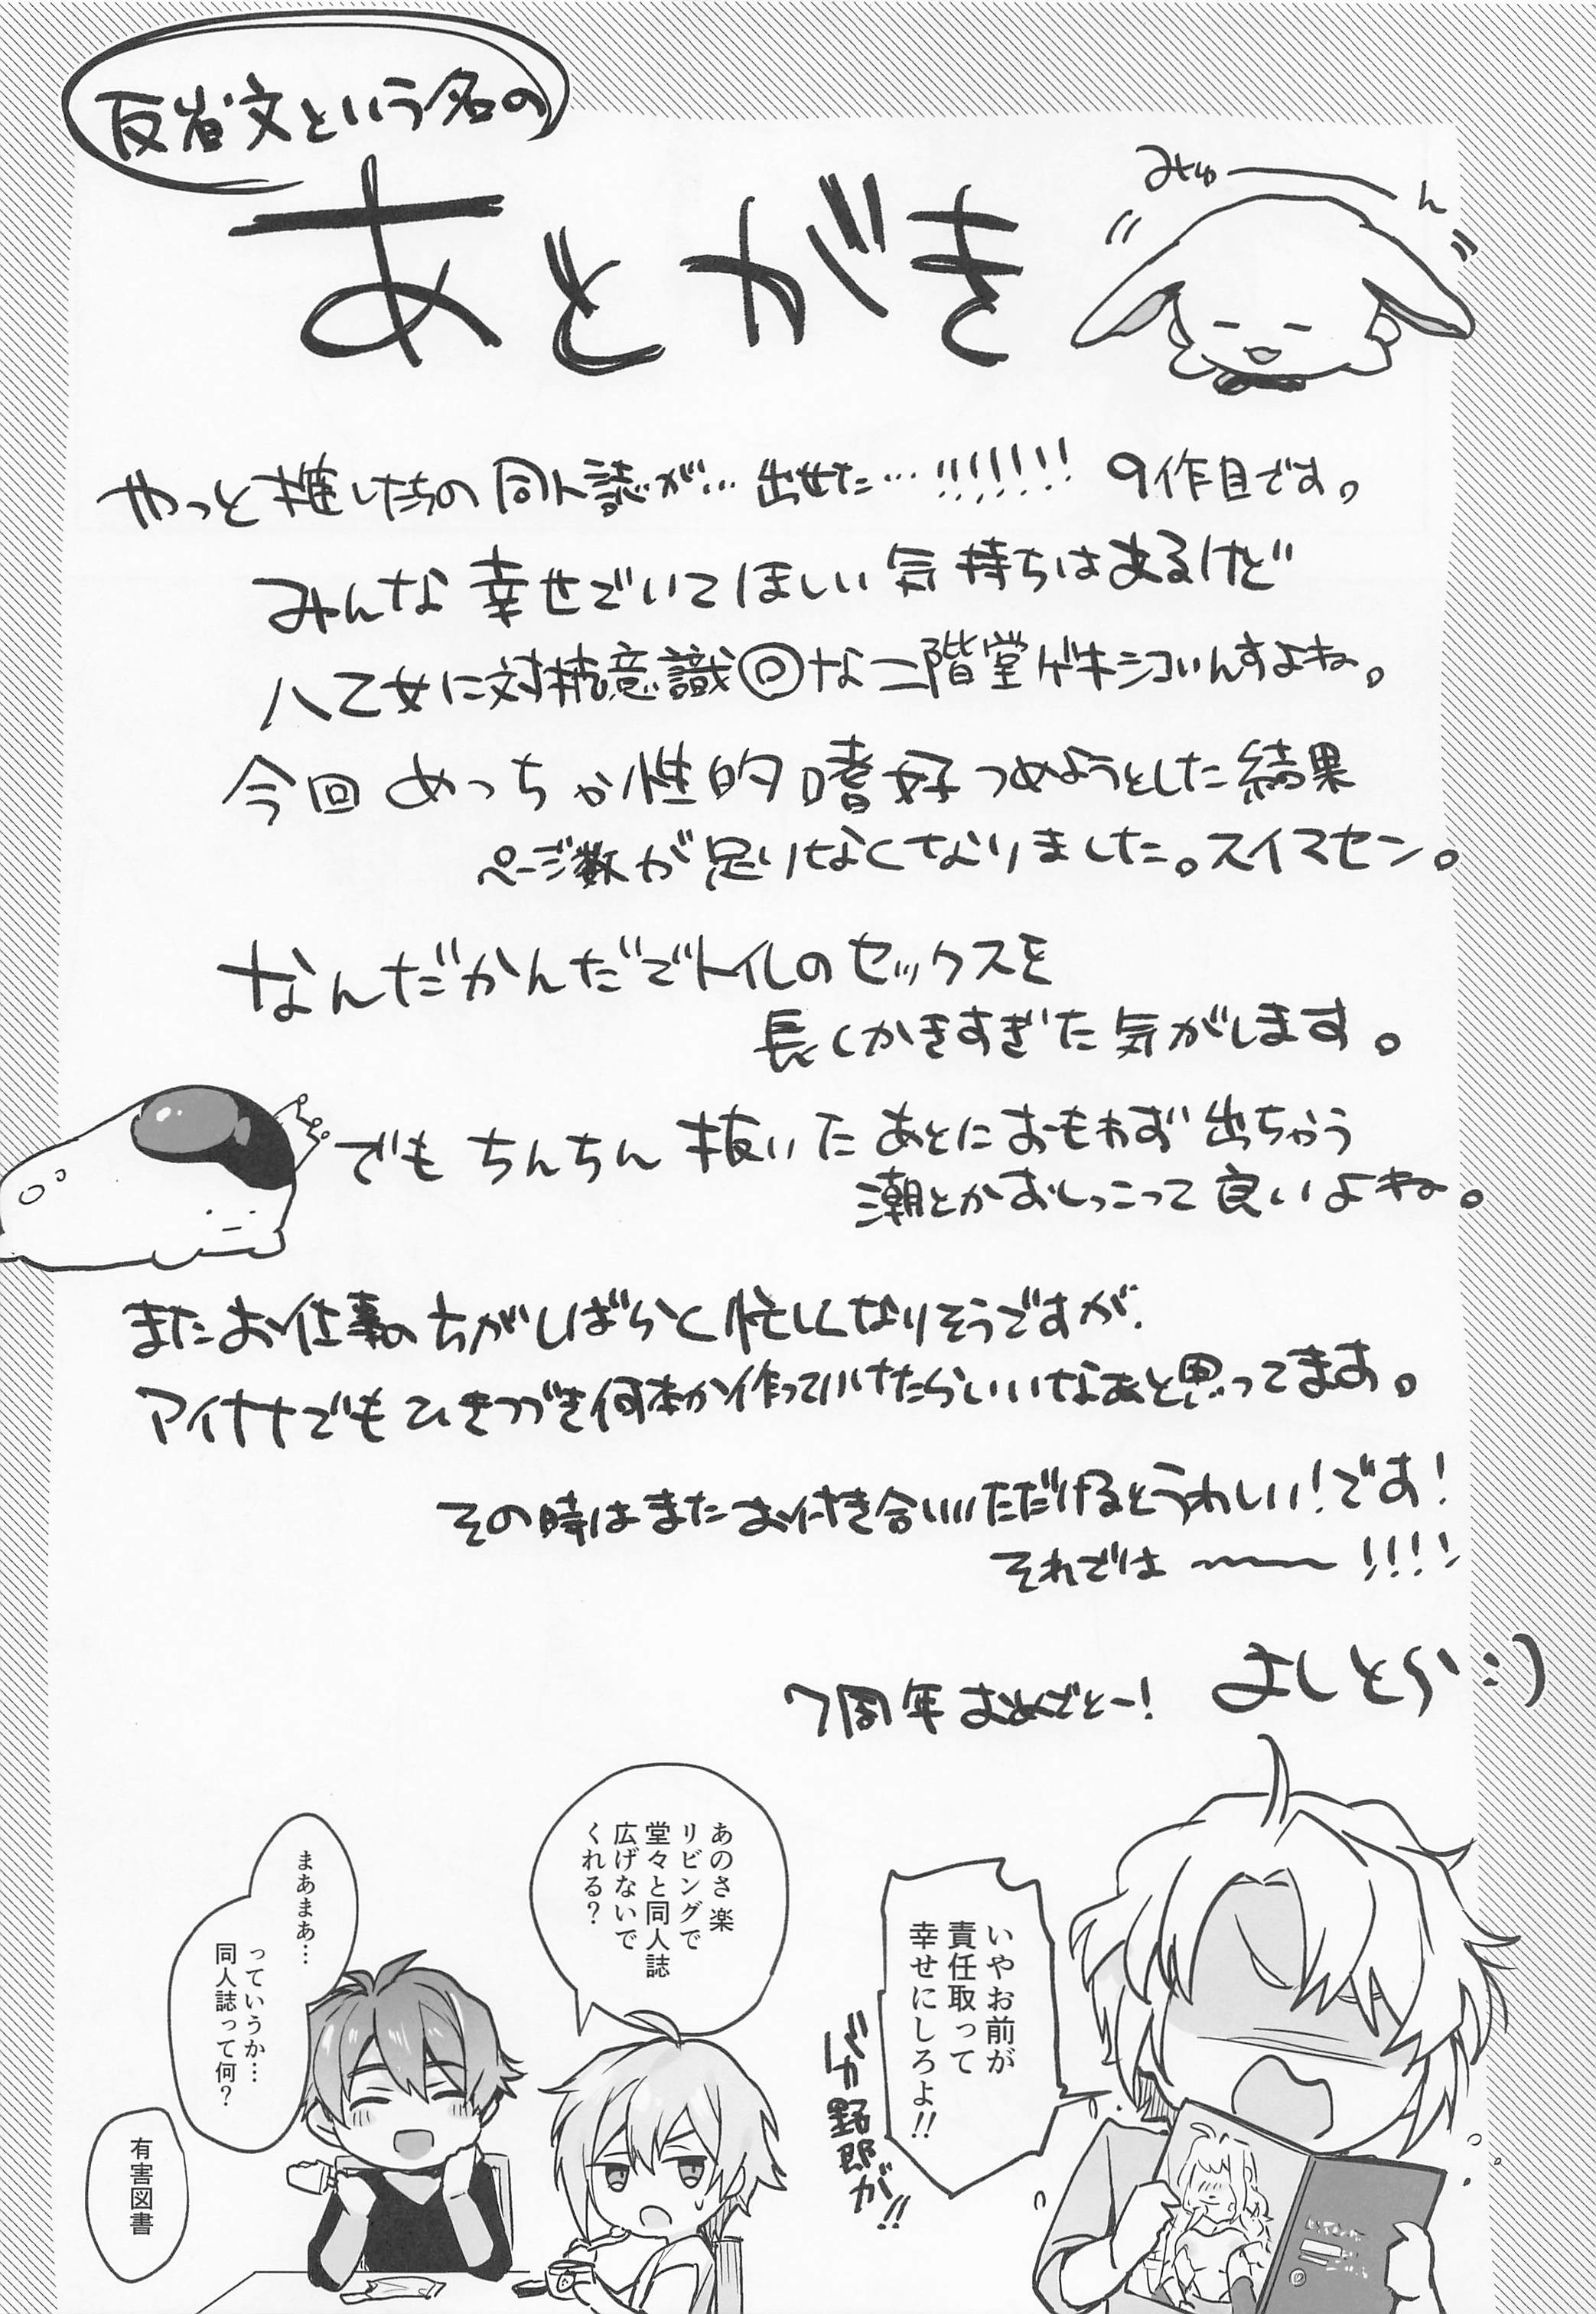 反省文という名の
あとがき
みゅーん
やっと推したちの同人誌が…出せた…!!!!!!! 9作目です。
みんな幸せでいてほしい気持ちはあるけど
八乙女に対抗意識回な二階堂ゲキシコいんすよね。
今回めっちゃ性的嗜好つめようとした結果
ページ数が足りなくなりました。スイマセン。
なんだかんだでトイレのセックスを
長くかきすぎた気がします。
でもちんちん抜いたあとにおもわず出ちゃう
潮とかおしっこって良いよね。
またお仕事の方がしばらく忙しくなりそうですが、
アイナナでもひきつづき何本か作っていけたらいいなぁと思ってます。
その時はまたお付き合いいただけるとうれしい!です!
それでは〜〜!!!!
7周年おめでとー!
よしとら:)
いやお前が
責任取って
幸せにしろよ!!
バカ野郎が!!
あのさ楽
リビングで
堂々と同人誌
広げないで
くれる?
まあまあ…
っていうか…
同人誌って何?
有害図書